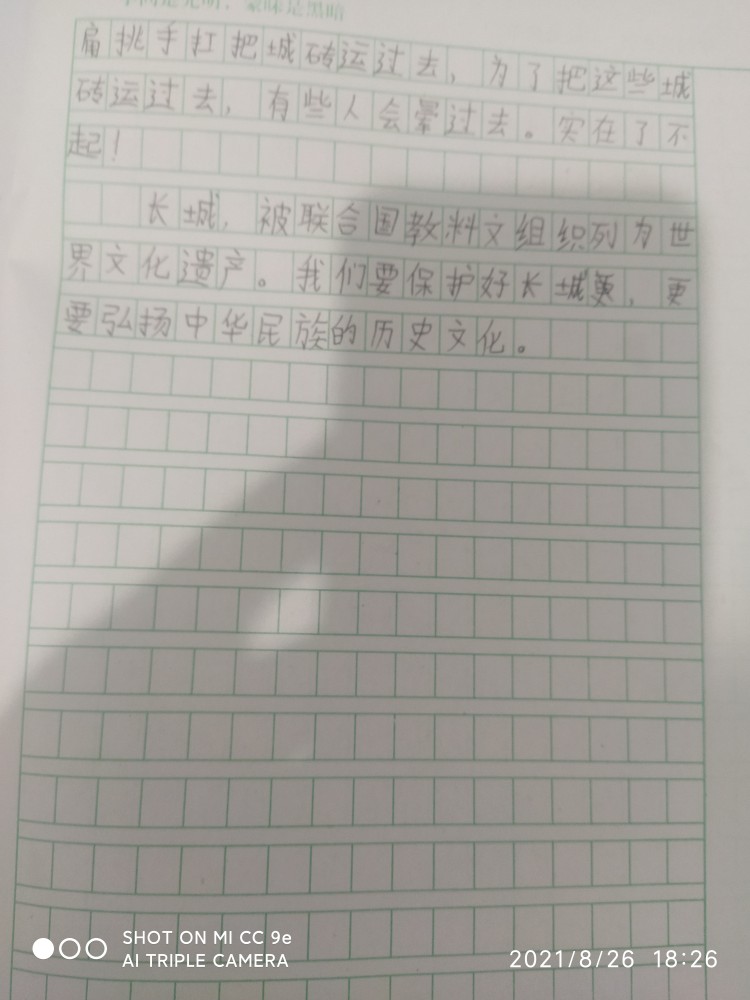 扁挑手扛把城砖运过去，为了把这些城
砖运过去，有些人会晕过去。实在了不
起！
长城，被联合国教料文组织列为世
界文化遗产。我们要保护好长城更，更
要弘扬中华民族的历史文化。
SHOT ON MI CC 9e
AI TRIPLE CAMERA
2021/8/26 18:26